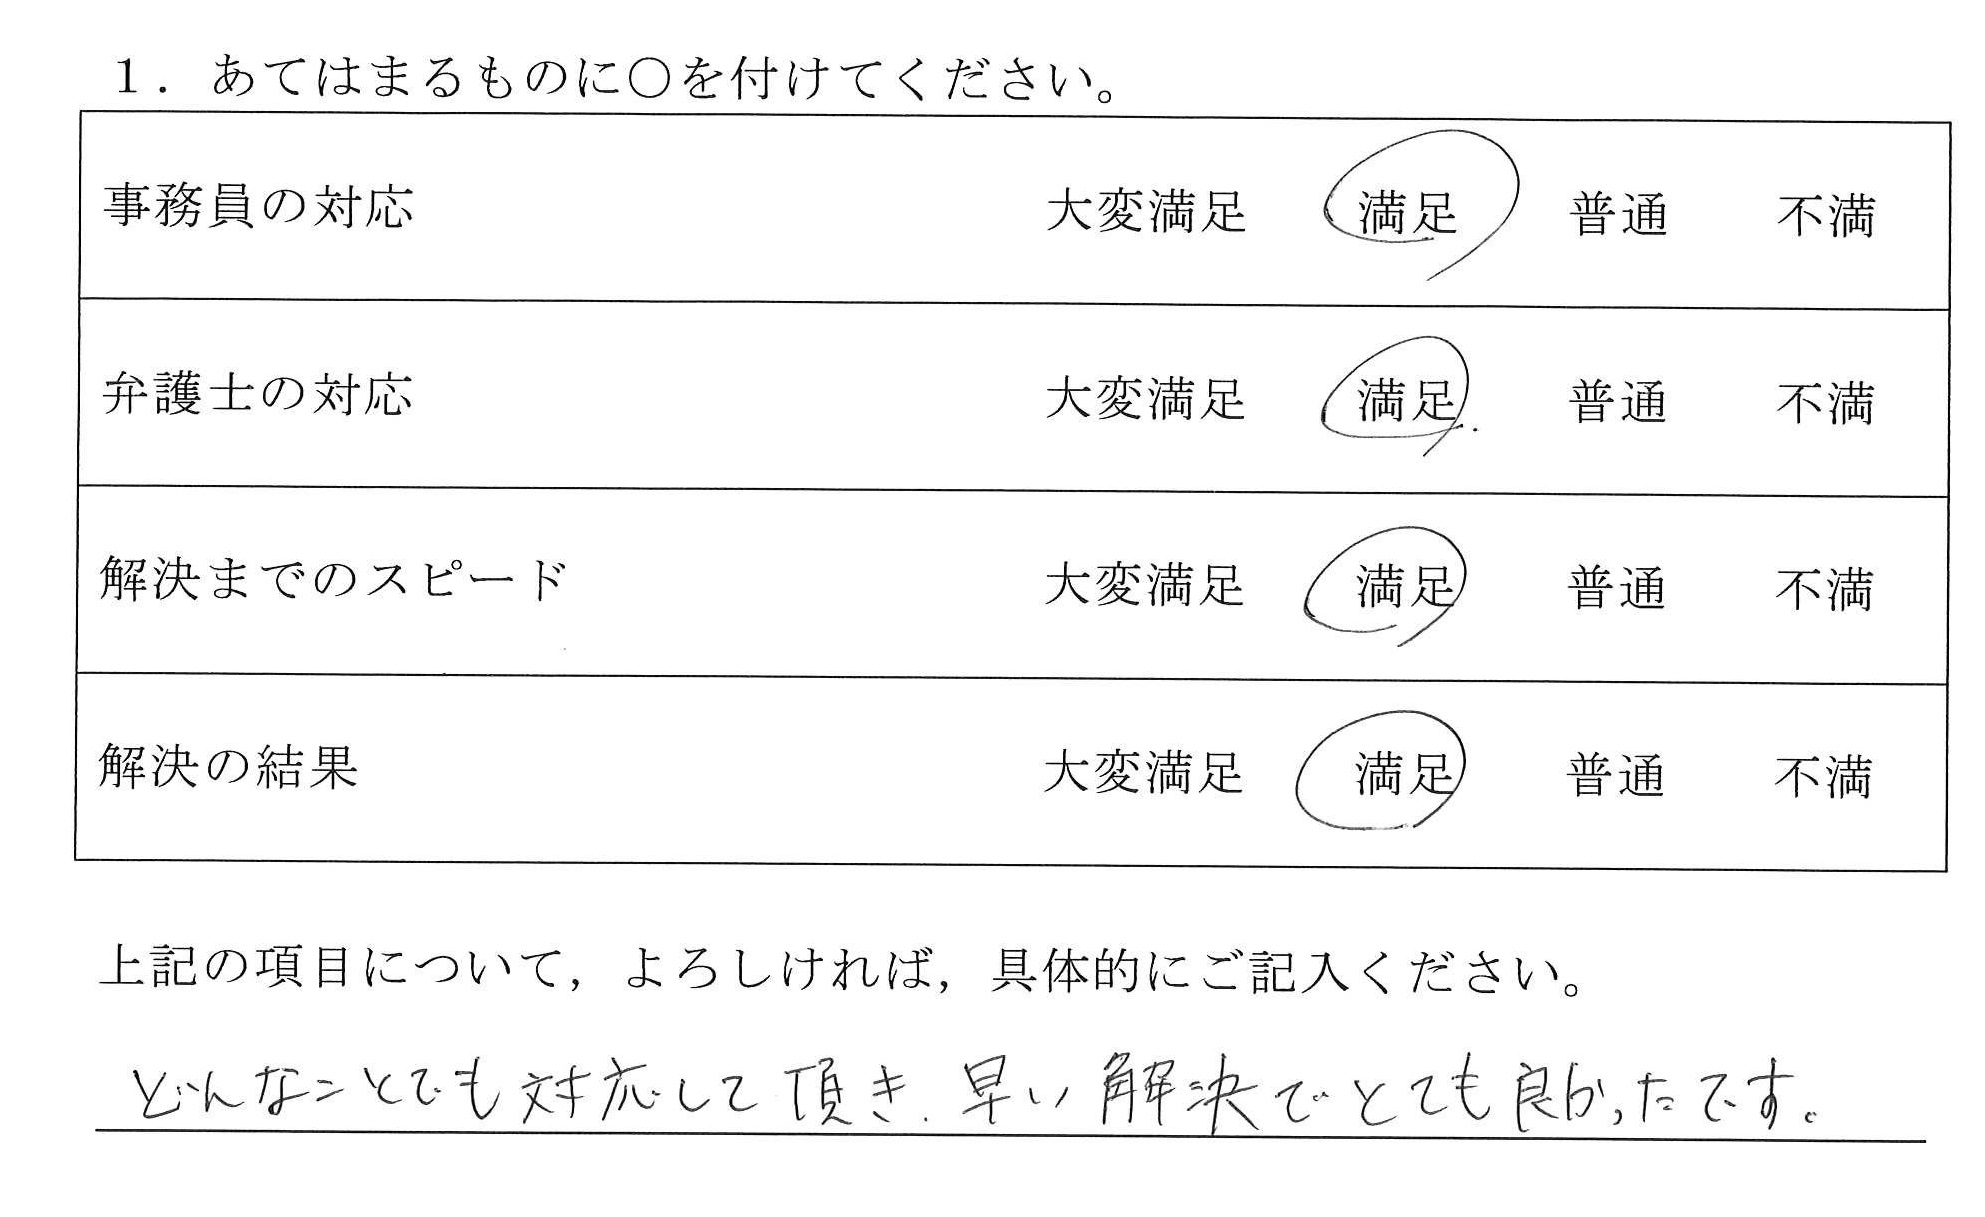 １．あてはまるものに○を付けてください。
事務員の対応 大変満足 満足 普通 不満
弁護士の対応 大変満足 満足 普通 不満
解決までのスピード 大変満足 満足 普通 不満
解決の結果 大変満足 満足 普通 不満
上記の項目について，よろしければ，具体的にご記入ください。
どんなことでも対応して頂き、早い解決でとても良かったです。